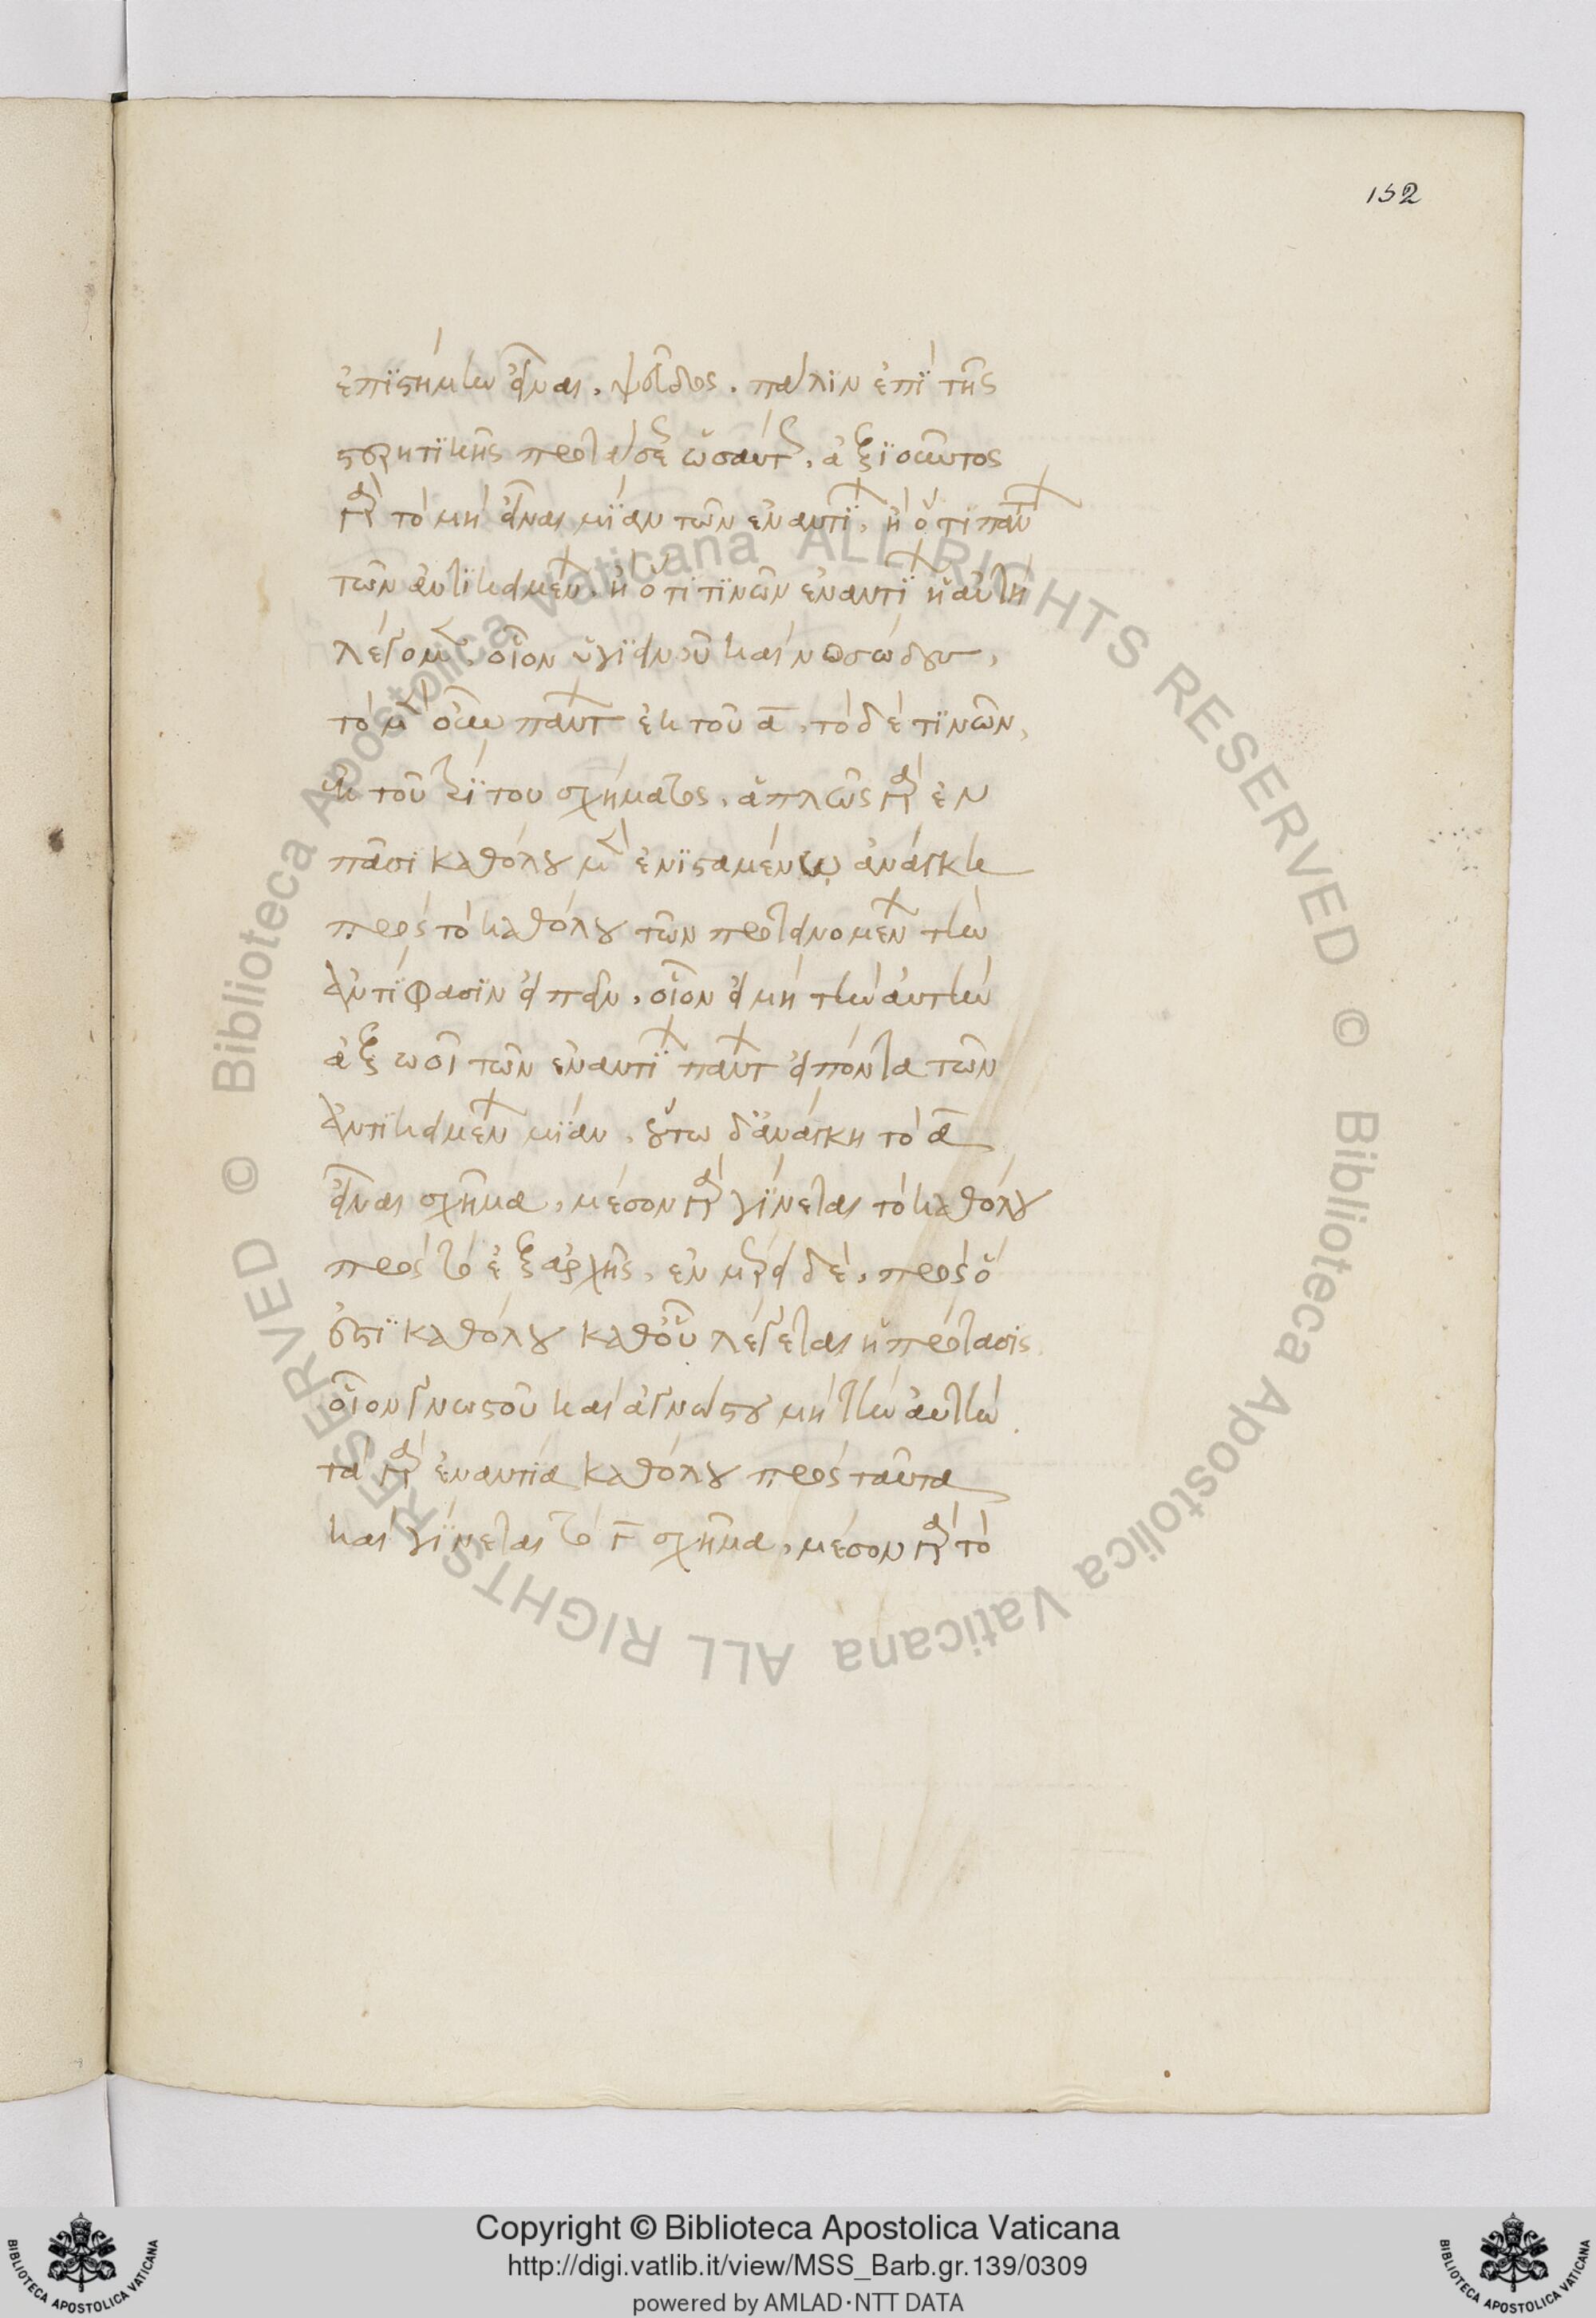 152
ἐπιστήμην εἶναι, ψεῦδος. πάλιν ἐπὶ τῆς
στερητικῆς προτάσεως ὡσαύτως, ἀξιοῦντος
γὰρ τὸ μὴ εἶναι μίαν τῶν ἐναντίων, ἢ ὅτι πάντων
τῶν ἀντικειμένων, ἢ ὅτι τινῶν ἐναντίων ἡ αὐτὴ
λέγομεν, οἷον ὑγιεινοῦ καὶ νοσώδους,
τὸ μὲν οὖν πάντων ἐκ τοῦ α, τὸ δέ τινῶν,
ἐκ τοῦ τρίτου σχήματος, ἁπλῶς γὰρ ἐν
πᾶσι καθόλου μὲν ἐνισταμένῳ ἀνάγκη
πρὸς τὸ καθόλου τῶν προτεινομένων τὴν
ἀντίφασιν εἰπεῖν, οἷον εἰ μὴ τὴν αὐτὴν
ἀξιοῖ τῶν ἐναντίων πάντων εἰπόντα τῶν
ἀντικειμένων μίαν, οὕτω δ' ἀνάγκη τὸ α
εἶναι σχῆμα, μέσον γὰρ γίνεται τὸ καθόλου
πρὸς τὸ ἐξαρχῆς, ἐν μέρει δέ, πρὸς ὅ
ἐστι καθόλου καθ' οὗ λέγεται ἡ πρότασις
οἷον γνωστοῦ καὶ ἀγνώστου μὴ τὴν αὐτήν
τὰ γὰρ ἐναντία καθόλου πρὸς ταῦτα
καὶ γίνεται τὸ γ σχῆμα, μέσον γὰρ τὸ
© Biblioteca Apostolica Vaticana ALL RIGHTS RESERVED © Biblioteca Apostolica Vaticana ALL RIGHTS RESERVED
Copyright © Biblioteca Apostolica Vaticana
http://digi.vatlib.it/view/MSS_Barb.gr.139/0309
powered by AMLAD·NTT DATA
BIBLIOTECA APOSTOLICA VATICANA
BIBLIOTECA APOSTOLICA VATICANA